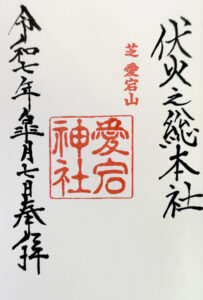 伏火之総本社
芝 愛宕山
愛宕神社
令和七年 月七日奉拝